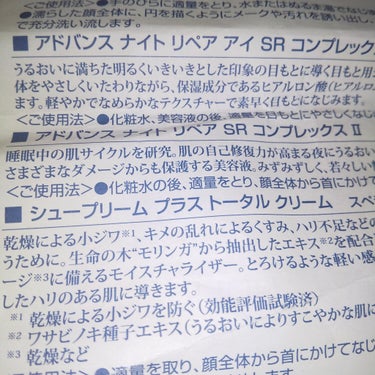 <ご使用法>●手のひらに適量をとり、水またはぬるま湯で
●濡らした顔全体に、円を描くようにメークや汚れを誘い出し、
で充分洗い流します。
■ アドバンス ナイト リペア アイ SR コンプレック
うるおいに満ちた明るくいきいきとした印象の目もとに導く目もと用
体をやさしくいたわりながら、保湿成分であるヒアルロン酸(ヒアルロ
ます。軽やかでなめらかなテクスチャーで素早く目もとになじみます。
<ご使用法>●化粧水、美容液の後、適量を目もとにやさしくなじ
■ アドバンス ナイト リペア SR コンプレックス Ⅱ
睡眠中の肌サイクルを研究。肌の自己修復力が高まる夜にうるおい
さまざまなダメージからも保護する美容液。みずみずしく、若々しい
<ご使用法>●化粧水の後、適量をとり、顔全体から首にかけて
■ シュープリーム プラス トータル クリーム スペ
乾燥による小ジワ※1、キメの乱れによるくすみ、ハリ不足などの
うために。生命の木“モリンガ”から抽出したエキス※2を配合
ージ※3に備えるモイスチャライザー。とろけるような軽い感
したハリのある肌に導きます。
※1 乾燥による小ジワを防ぐ(効能評価試験済)
※2 ワサビノキ種子エキス(うるおいによりすこやかな肌に
※3 乾燥など
ご使用法>●適量を取り、顔全体から首にかけてなじ